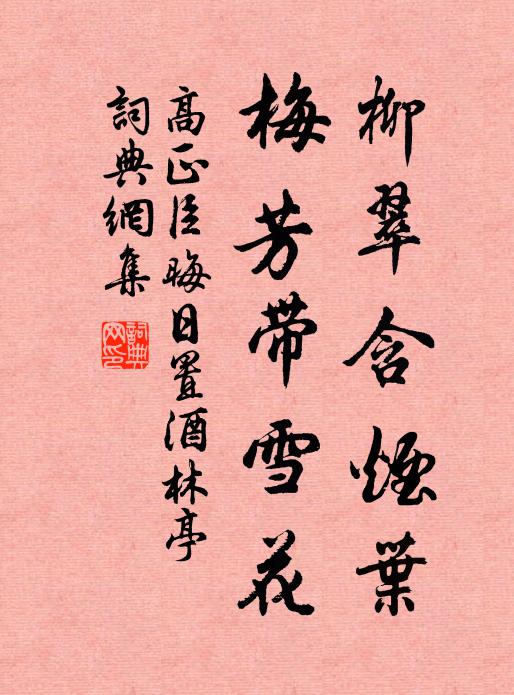 柳翠含煙葉
梅芳带雪花
高正臣晦日置酒林亭
詞典網集
詞典网印